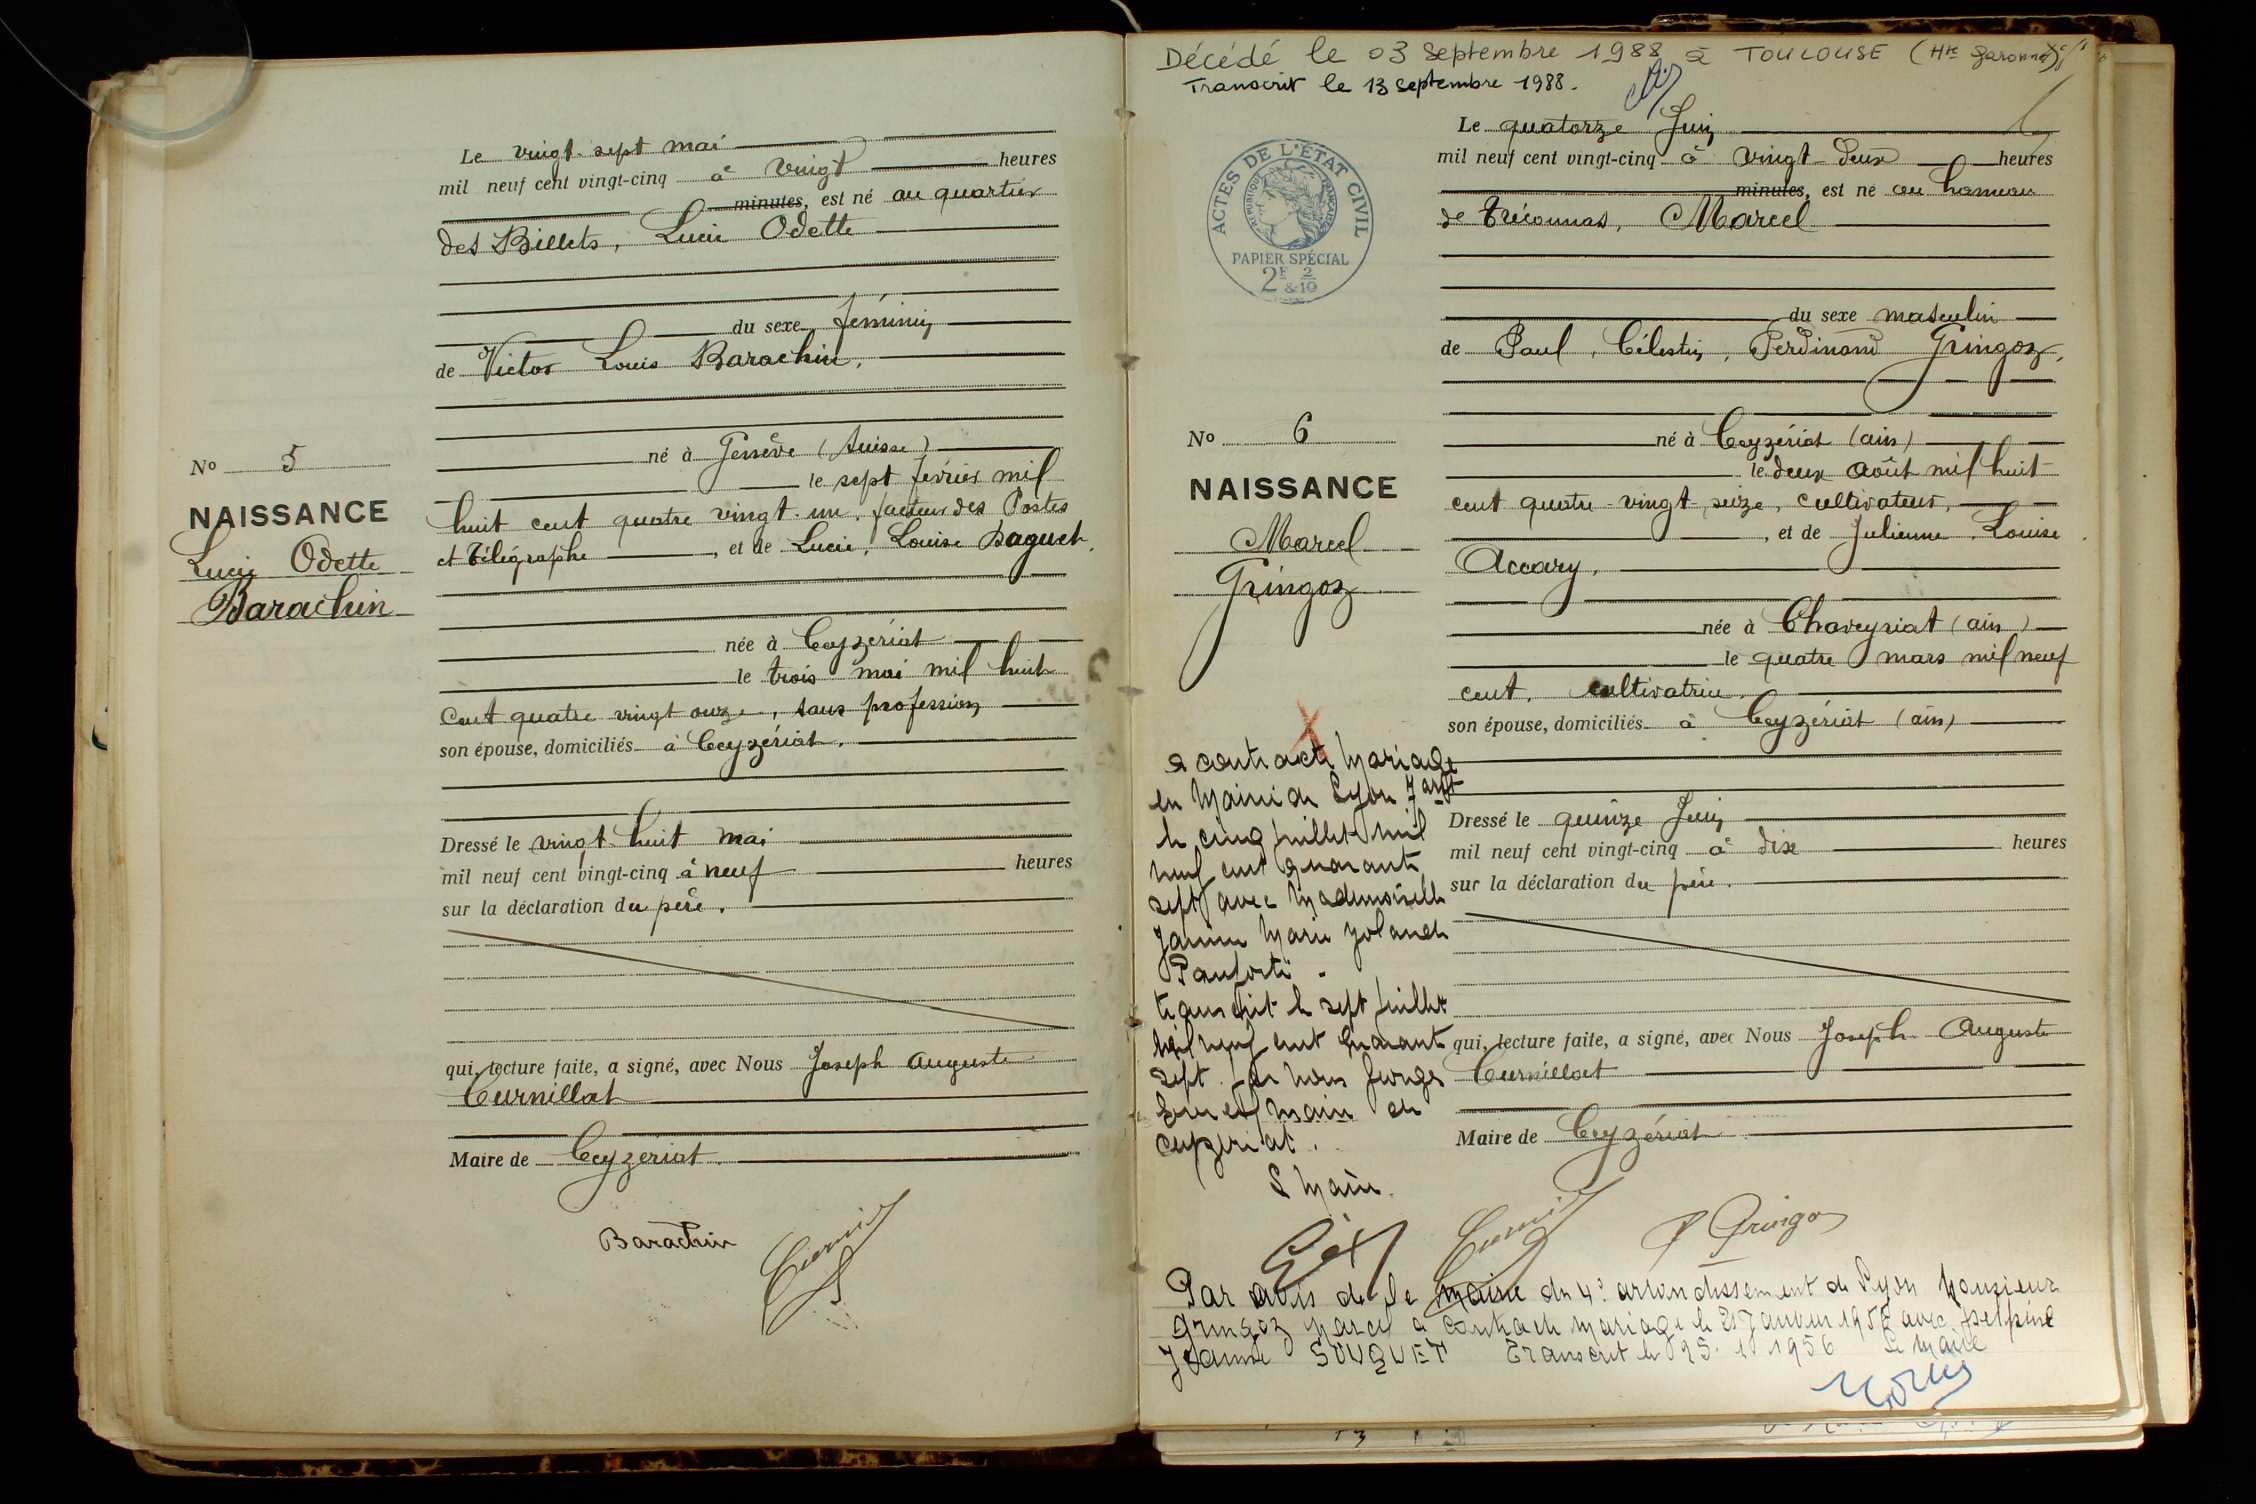 Le vingt-sept mai
mil neuf cent vingt-cinq à vingt heures
minutes, est né au quartier
des Billets, Lucie Odette
du sexe féminin
de Victor Louis Barachin,
né à Genève (Suisse)
le sept février mil
huit cent quatre vingt-un, facteur des Postes
et Télégraphe, et de Lucie, Louise Daguet,
née à Ceyzériat
le trois mai mil huit
Cent quatre vingt onze, sans profession
son épouse, domiciliés à Ceyzériat.
No 5
NAISSANCE
Lucie Odette
Barachin
Dressé le vingt-huit mai
mil neuf cent vingt-cinq à neuf heures
sur la déclaration du père.
qui, lecture faite, a signé, avec Nous Joseph Auguste
Curnillat
Maire de Ceyzériat.
Barachin
Décédé le 03 Septembre 1988 à TOULOUSE (Hte Garonne)
Transcrit le 13 Septembre 1988.
ACTES DE L'ÉTAT CIVIL
RÉPUBLIQUE FRANÇAISE
PAPIER SPÉCIAL
2F & 2/10
Le quatorze Juin
mil neuf cent vingt-cinq à vingt-deux heures
minutes, est né au hameau
de Tréconnas, Marcel
du sexe masculin
de Paul, Célestin, Ferdinand Gringoz,
né à Ceyzériat (ain)
le deux Août mil huit
cent quatre-vingt seize, cultivateur,
et de Julienne Louise
Accary,
née à Chaveyriat (ain)
le quatre mars mil neuf
cent, cultivatrice
son épouse, domiciliés à Ceyzériat (ain)
No 6
NAISSANCE
Marcel
Gringoz
Dressé le quinze Juin
mil neuf cent vingt-cinq à dix heures
sur la déclaration du père.
qui, lecture faite, a signé, avec Nous Joseph Auguste
Curnillat
Maire de Ceyzériat
a contracté Mariage
en Mairie de Lyon 7 arrt
le cinq juillet mil
neuf cent quarante
sept avec Mademoiselle
Janine Marie Yolande
Panforti.
transcrit le sept juillet
mil neuf cent quarante
sept. Par nous
maire de
Ceyzeriat.
Le Maire.
P Gringoz
Par avis de le Maire du 4e arrondissement de Lyon Monsieur
Gringoz Marcel a contracté Mariage le 21 Janvier 1956 avec Delphine
Jeanne SOUQUET Transcrit le 25.1.1956 Le Maire